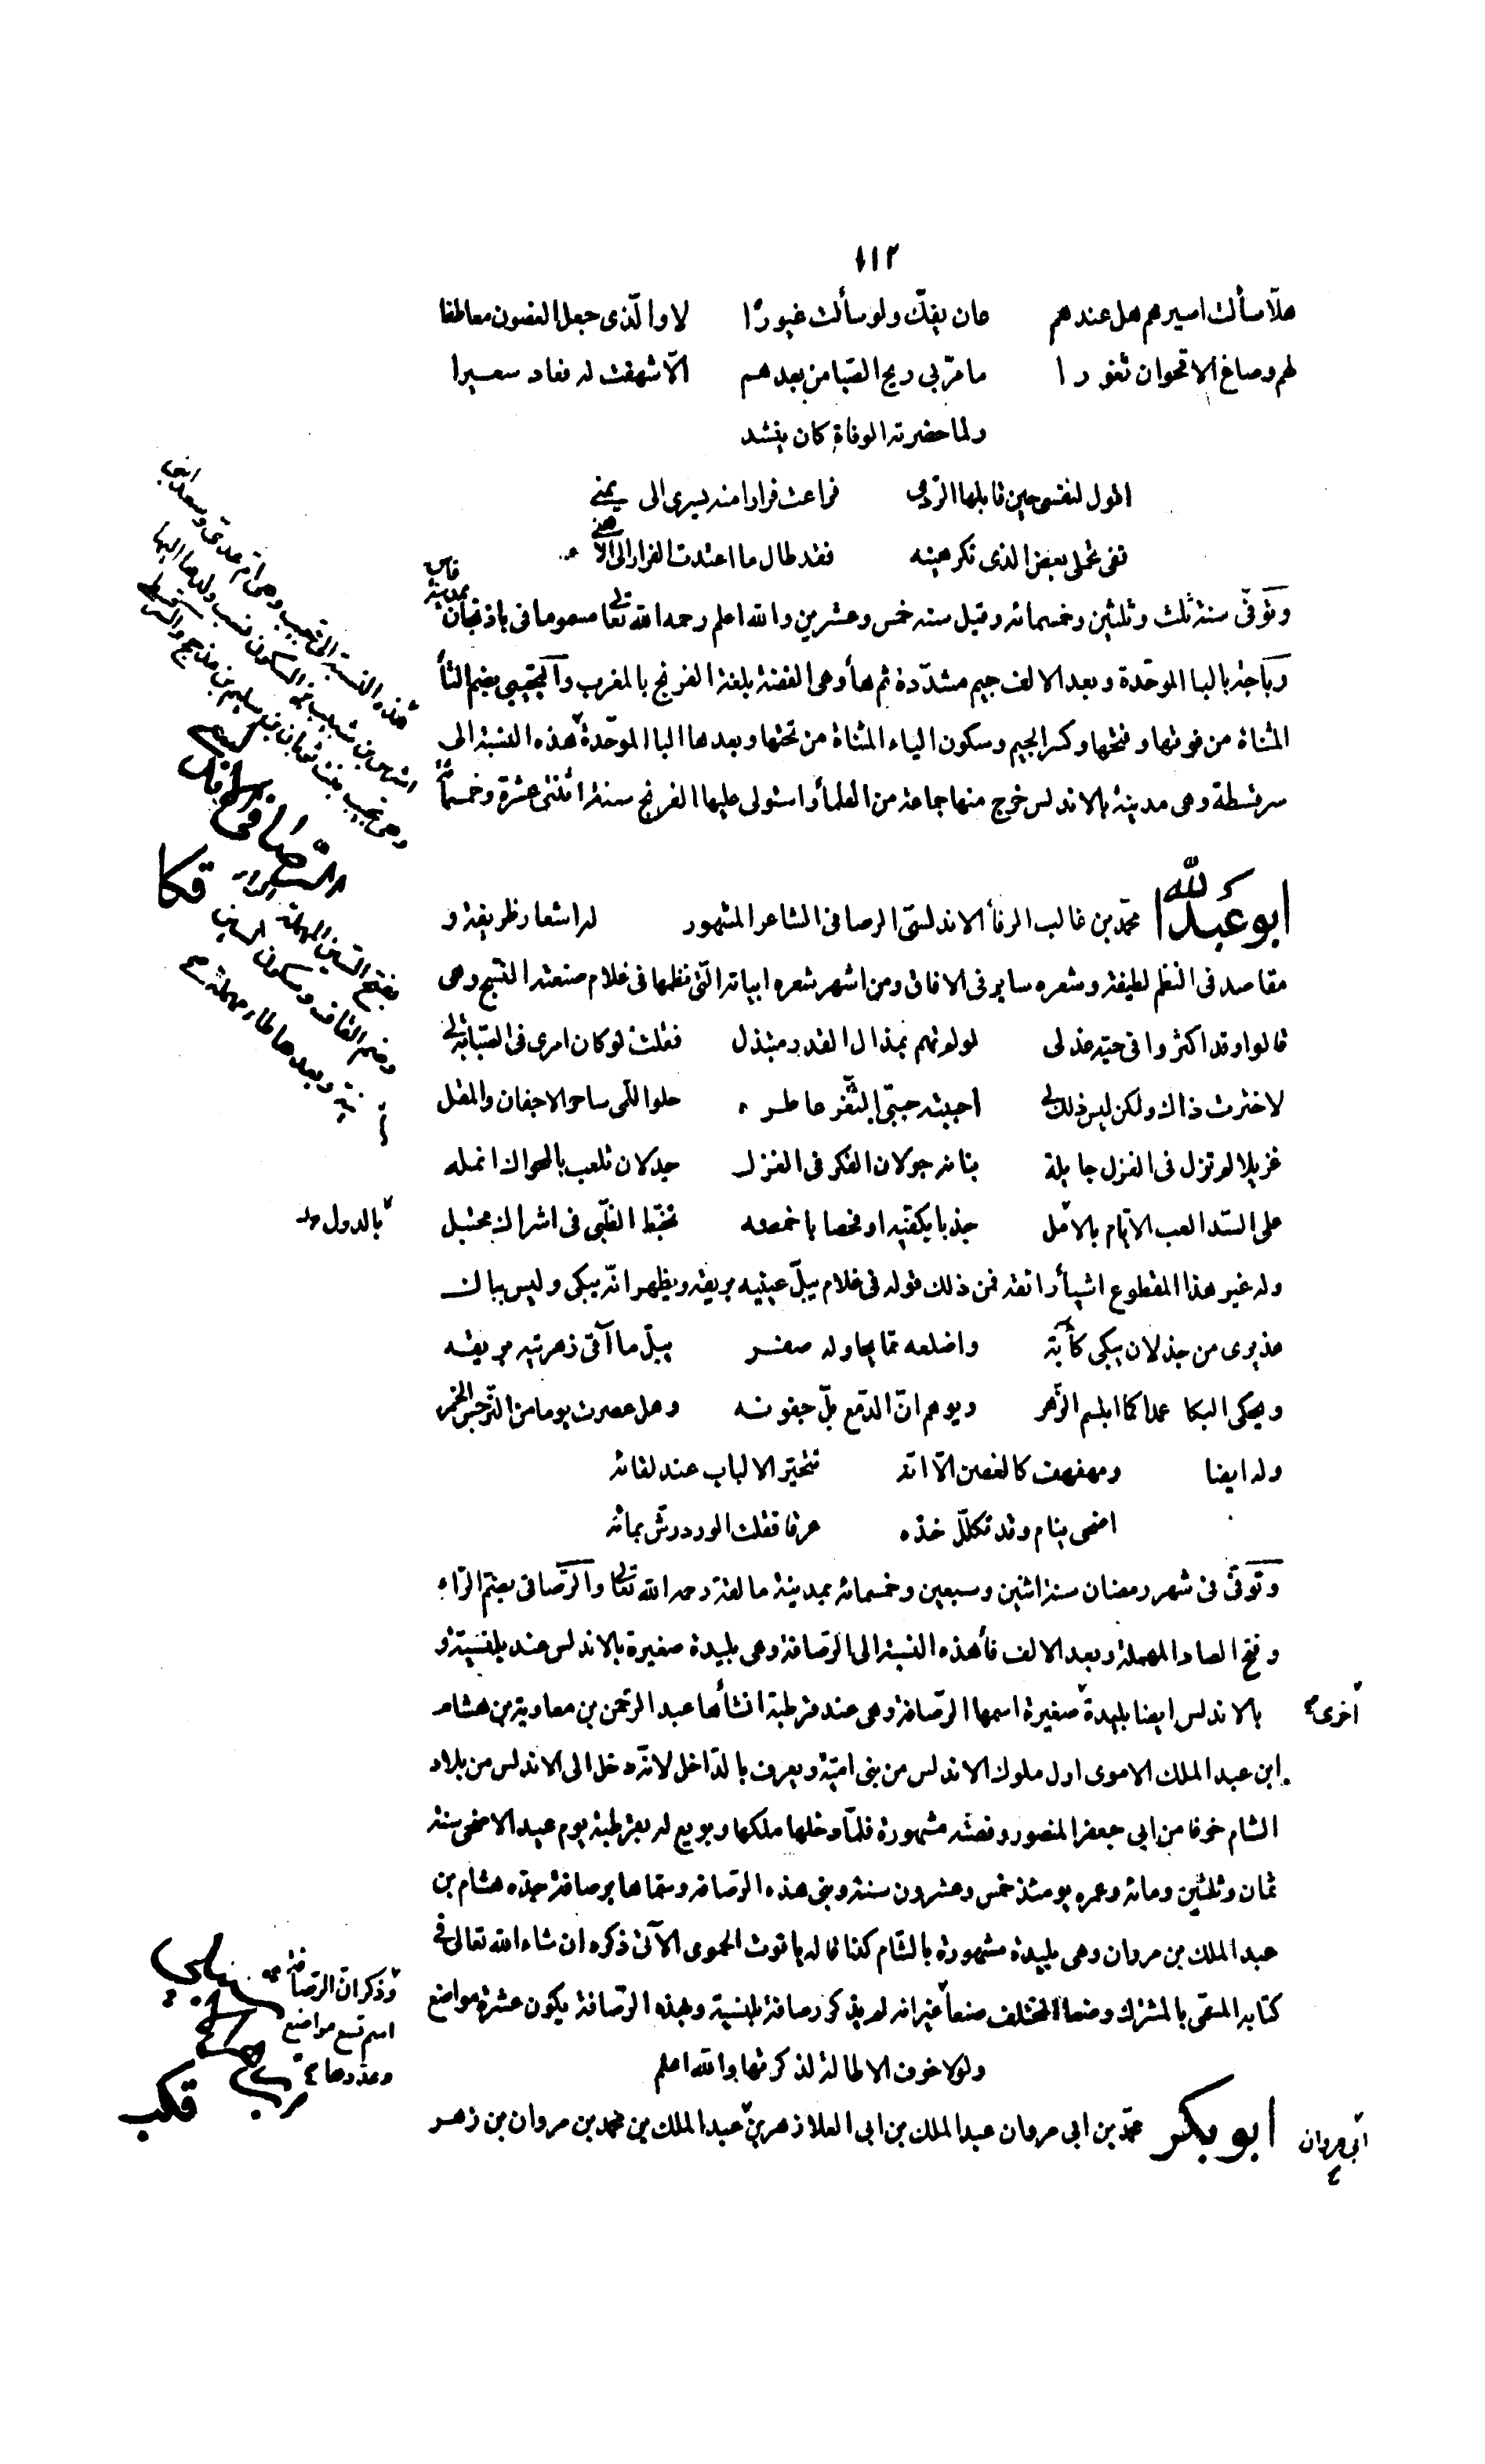 ١١٢
هلا سألت اسيرهم هل عندهم عان يفكّ ولو سألت غيورًا لا والّذى جعل الغصون معاطفا
لهم وصاغ الاقحوان ثغورا ما مرّ بى ريح الصّبا من بعدهم الّا شهقت له فعاد سعيرا
ولما حضرته الوفاة كان ينشد
اقول لنفسى حين قابلها الرّدى فراعت فرارا منه يسرى الى يمنى
قفى تحملى بعض الذى تكرهينه فقد طال ما اعتدت الفرار الى الاهنى
وتوفّى سنة ثلث وثلثين وخمسمائه وقيل سنه خمس وعشرين والله اعلم رحمه الله تعالى مسموما فى باذنجان
بمدينة فاس
وبَاجّه بالبا الموحّدة وبعد الالف جيم مشدّدة ثم هاء وهى الفضة بلغة الفرنج بالمغرب والتجيبى بضم التاء
المثناة من فوقها وفتحها وكسر الجيم وسكون الياء المثناة من تحتها وبعدها البا الموحّدة هذه النسبة الى
سرقسطة وهى مدينة بالاندلس خرج منها جماعة من العلماء واستولى عليها الفرنج سنة اثنتى عشرة وخمسمائة
ابو عبد الله محمّد بن غالب الرفاء الاندلسى الرصافى الشاعر المشهور له اشعار ظريفة و
قكا
مقاصد فى النظم لطيفة وشعره ساير فى الافاق ومن اشهر شعره ابياته الّتى نظمها فى غلام صنعته النسج وهى
قالوا وقد اكثروا فى حبّه عذلى لو لم تهم بمذال القدر مبتذل فقلت لو كان امرى فى الصّبابة لى
لاخترت ذاك ولكن ليس ذلك لى احببته حببّى الثّغر عاطره حلو اللّمى ساحر الاجفان والمقل
غزيلا لم تزل فى الغزل جايلة بنانه جولان الفكر فى الغزل جذلان تلعب بالمحواك انمله
على السّدا لعب الايّام بالامل جذبا بكفّيه او فحصا باخمصه تخبّط الظّبى فى اشراك محتبل
بالدول
وله غير هذا المقطوع اشياء رائقه فمن ذلك قوله فى غلام يبلّ عينيه بريقه ويظهر انّه يبكى وليس بباك
عذيرى من جذلان يبكى كآبة واضلعه ممّا يحاوله صفر يبلّ مآقى زهرتيه بريقه
ويحكى البكا عمدا كما ابتسم الزّهر ويوهم انّ الدّمع بلّ جفونه وهل عصرت يوما من النّرجس الخمر
وله ايضا ومهفهف كالغصن الّا انّه تتحيّر الالباب عند لقائه
اضحى ينام وقد تكلّل خدّه عرقا فقلت الورد رشّ بمائه
وتوفّى فى شهر رمضان سنة اثنين وسبعين وخمسمائه بمدينة مالقة رحمه الله تعالى والرّصافى بضمّ الرّاء
وفتح الصاد المهملة وبعد الالف فاء هذه النسبة الى الرصافة وهى بليدة صغيرة بالاندلس عند بلنسيّة و
بالاندلس ايضا بليدة صغيرة اسمها الرّصافة وهى عند قرطبة انشأها عبد الرّحمن بن معاوية بن هشام
أخرى
ابن عبد الملك الاموى اول ملوك الاندلس من بنى اميّة ويعرف بالدّاخل لانّه دخل الى الاندلس من بلاد
الشام خوفا من ابى جعفر المنصور وقصّته مشهورة فلمّا دخلها ملكها وبويع له بقرطبة يوم عيد الاضحى سنة
ثمان وثلثين ومائه وعمره يومئذ خمس وعشرون سنة وبنى هذه الرّصافه وسمّاها برصافة جدّه هشام بن
عبد الملك بن مروان وهى بليدة مشهورة بالشام كذا قاله ياقوت الحموى الآتى ذكره ان شاء الله تعالى فى
كتابه المسمّى بالمشترك وضعا المختلف صقعا غير انه لم يذكر رصافة بلنسية وبهذه الرّصافة يكون عشرة مواضع
وذكر انّ الرّصافة
اسم تسع مواضع
وعددها
ولولا خوف الاطالة لذكرتها والله اعلم
ابو بكر محمّد بن ابى مروان عبد الملك بن ابى العلا زهر بن عبد الملك بن محمد بن مروان بن زهر
ابى مروان
قكب